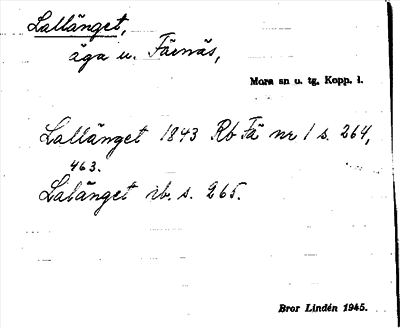 Lallänget,
äga u. Färnäs,
Mora sn u. tg, Kopp. l.
Lallänget 1843 Rb Fä nr 1 s. 264,
463.
Lalänget ib. s. 265.
Bror Lindén 1945.